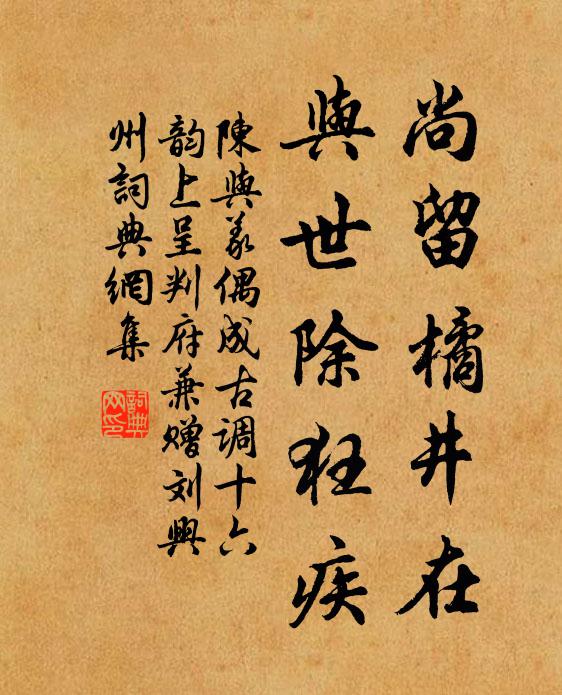 尚留橘井在
與世除狂疾
陳與義偶成古調十六
韵上呈判府兼贈刘興
州詞典網集
詞典網印